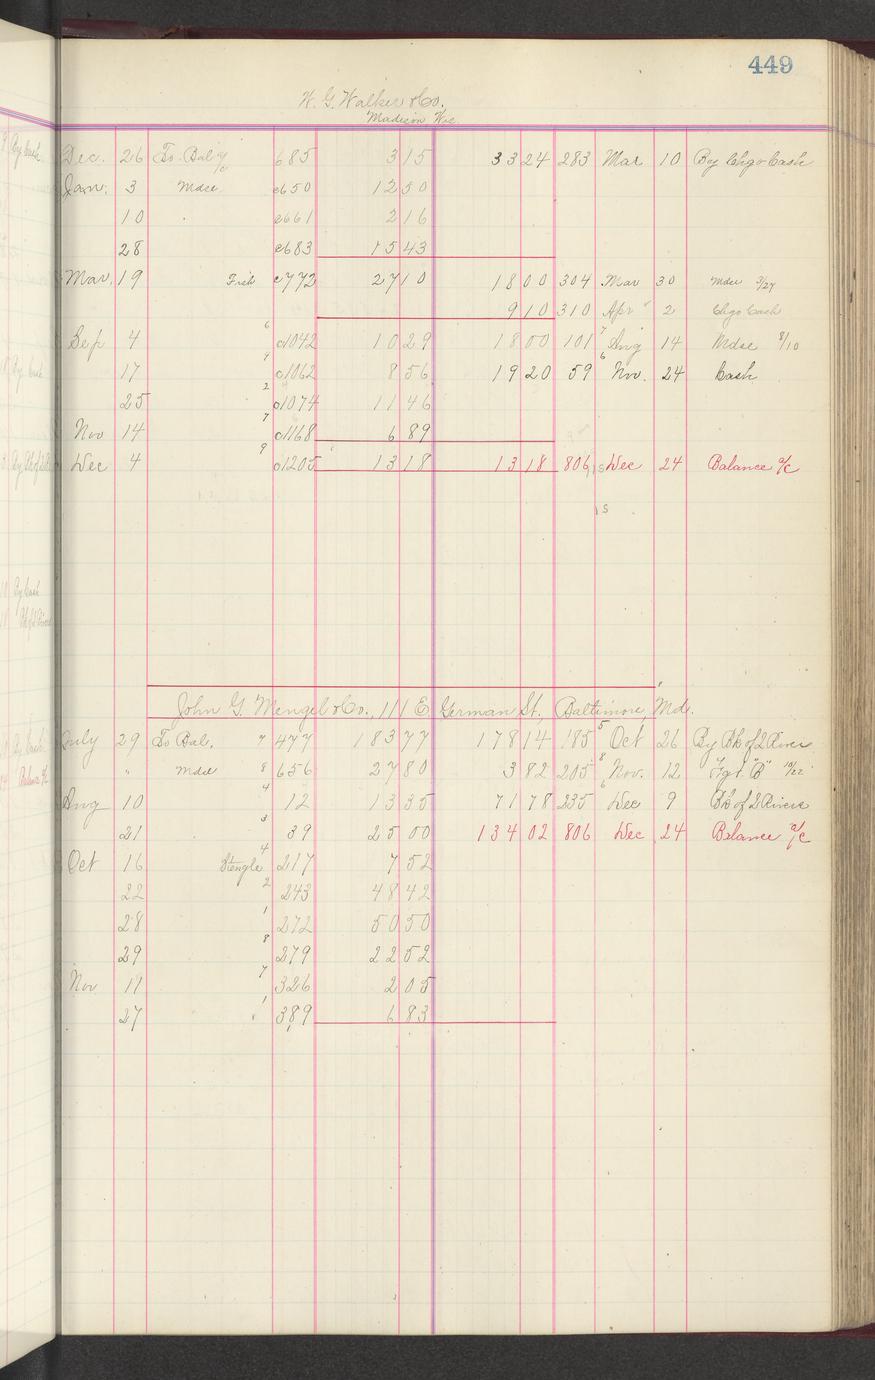 449
W. G. Walker & Co.
Madison Wis.
Dec. 26 To Bal a/c 685 3 15 33 24 283 Mar 10 By Chgo Cash
Jan. 3 Mdse c650 12 50
10 " c661 2 16
28 c683 15 43
Mar. 19 Fish c772 27 10 18 00 304 Mar 30 Mdse 3/27
9 10 310 Apr 2 Chgo Cash
Sep 4 6 c1042 10 29 18 00 101 7 Aug 14 Mdse 8/10
17 9 c1062 8 56 19 20 59 6 Nov. 24 Cash
25 2 c1074 11 46
Nov 14 7 c1168 6 89
Dec 4 9 c1205 13 18 13 18 806 Dec 24 Balance a/c
John G. Mengel & Co., 111 E. German St., Baltimore, Md.
July 29 To Bal. 7 477 183 77 178 14 185 5 Oct 26 By Bk of 2 Rivers
" Mdse 8 656 27 80 3 82 205 8 Nov. 12 Fgt. "B" 10/22
Aug 10 4 12 13 35 71 78 235 6 Dec 9 Bk of 2 Rivers
21 3 39 25 00 134 02 806 Dec 24 Balance a/c
Oct 16 4 217 7 52
22 2 243 48 42
28 1 272 50 50
29 8 279 22 52
Nov 11 7 326 2 05
27 1 389 6 83